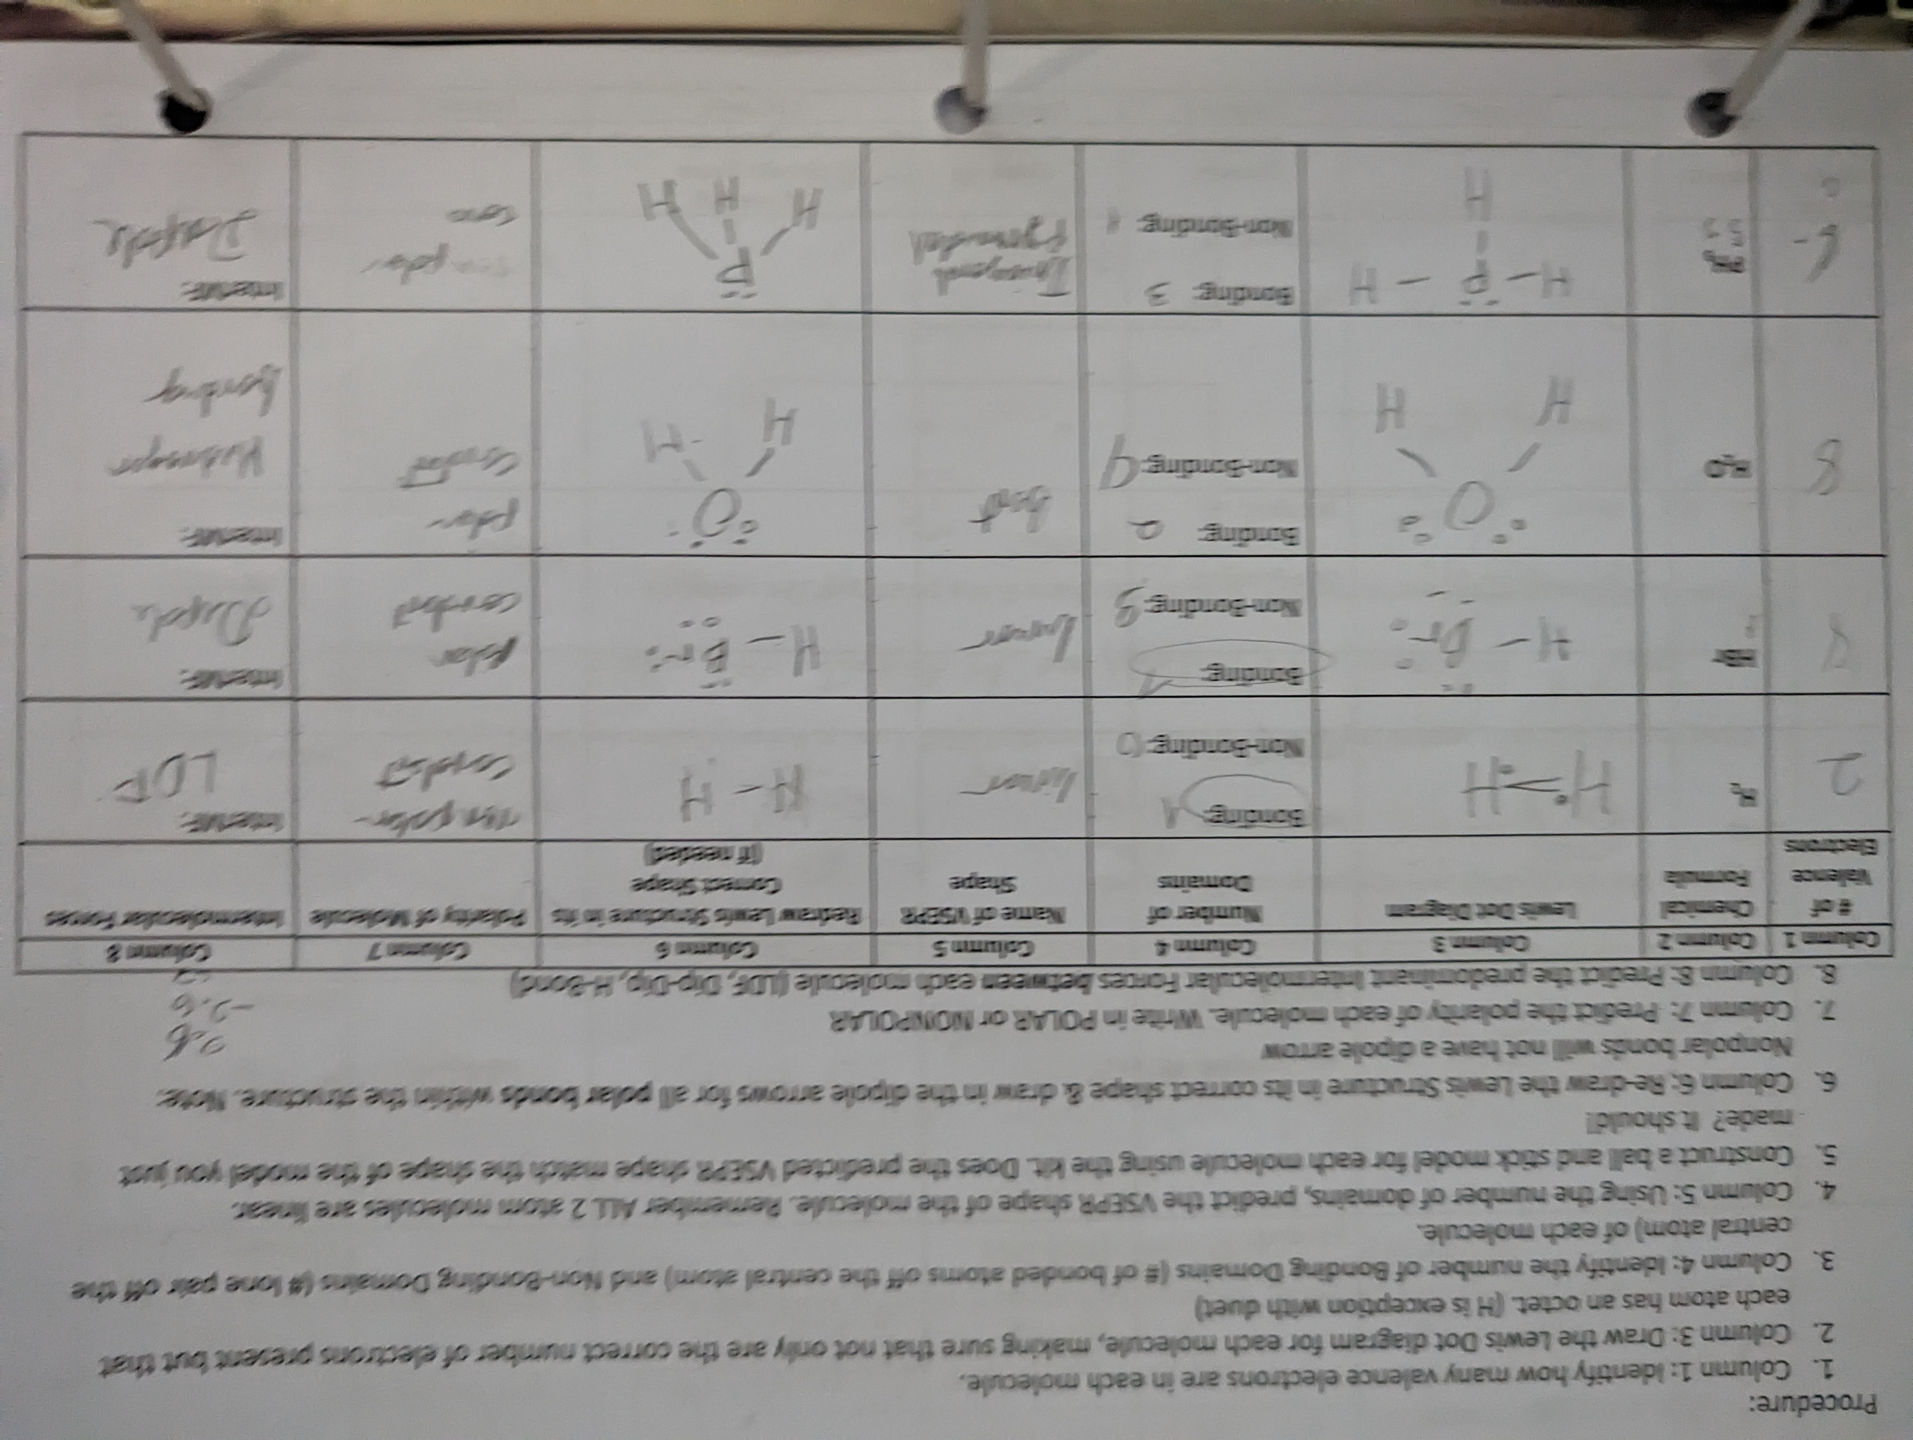 Procedure:
1. Column 1: Identify how many valence electrons are in each molecule.
2. Column 3: Draw the Lewis Dot diagram for each molecule, making sure that not only are the correct number of electrons present but that
each atom has an octet. (H is exception with duet)
3. Column 4: Identify the number of Bonding Domains (# of bonded atoms off the central atom) and Non-Bonding Domains (# lone pair off the
central atom) of each molecule.
4. Column 5: Using the number of domains, predict the VSEPR shape of the molecule. Remember ALL 2 atom molecules are linear.
5. Construct a ball and stick model for each molecule using the kit. Does the predicted VSEPR shape match the shape of the model you just
made? It should!
6. Column 6: Re-draw the Lewis Structure in its correct shape & draw in the dipole arrows for all polar bonds within the structure. Note:
Nonpolar bonds will not have a dipole arrow
7. Column 7: Predict the polarity of each molecule. Write in POLAR or NONPOLAR
8. Column 8: Predict the predominant Intermolecular Forces between each molecule (LDF, Dip-Dip, H-Bond)
Column 1 Column 2 Column 3 Column 4 Column 5 Column 6 Column 7 Column 8
# of Valence Electrons
Chemical Formula
Lewis Dot Diagram
Number of Domains
Name of VSEPR Shape
Redraw Lewis Structure in its Correct Shape (if needed)
Polarity of Molecule
Intermolecular Forces
2
H₂
H H
Bonding: 1
Non-Bonding: 0
linear
H - H
non polar
InterMF:
LDF
HBr
H - Br
Bonding: 1
Non-Bonding: 3
linear
H - Br
polar
InterMF:
8
H₂O
O
H H
Bonding: 2
Non-Bonding:
bent
O
H H
polar
InterMF:
Hydrogen
bonding
PH₃
H - P - H
H
Bonding: 3
Non-Bonding:
P
H H H
InterMF: